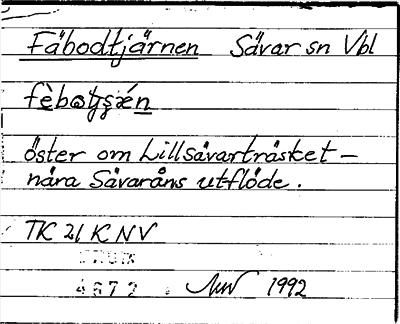 Fäbodtjärnen Sävar sn Vbl
öster om Lillsävarträsket –
nära Sävaråns utflöde.
TK 21 K NV
4672 1992